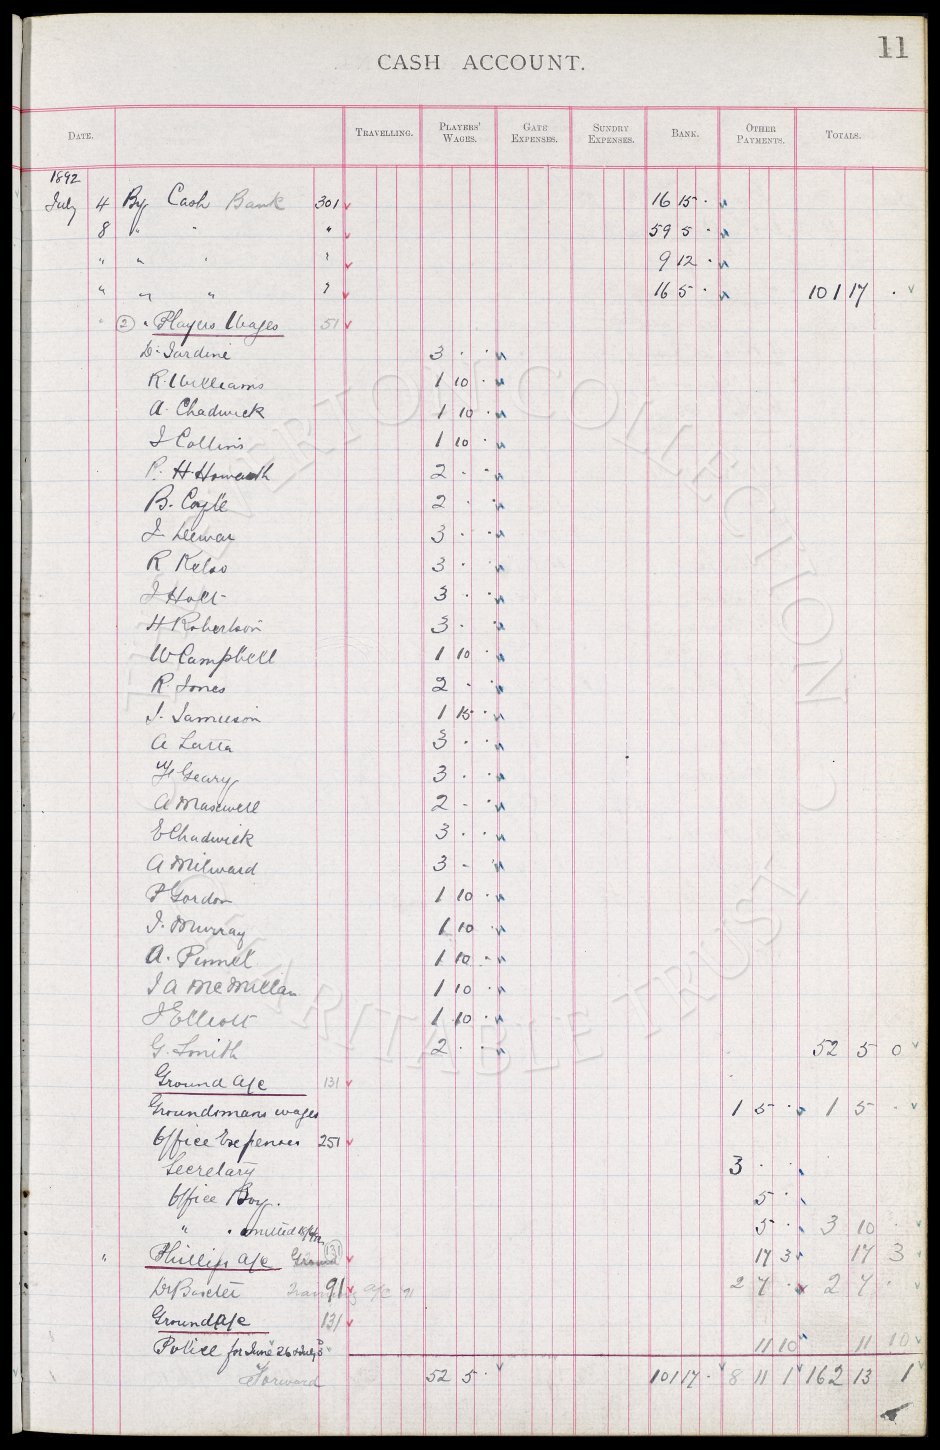 11
CASH ACCOUNT.
DATE. TRAVELLING. PLAYERS' WAGES. GATE EXPENSES. SUNDRY EXPENSES. BANK. OTHER PAYMENTS. TOTALS.
1892
July 4 By Cash Bank 301 16 15 .
8 " " " 59 5 .
" " " " 9 12 .
" " " " 16 5 . 101 17 .
" (2) " Players Wages 51
D. Jardine 3 . .
R. Williams 1 10 .
A. Chadwick 1 10 .
J Collins 1 10 .
P. H. Howarth 2 . .
B. Coyle 2 . .
J. Dewar 3 . .
R Kelso 3 . .
J Holt 3 . .
H Robertson 3 . .
W Campbell 1 10 .
R. Jones 2 . .
J. Jamieson 1 15 .
A Latta 3 . .
F Geary 3 . .
A Maxwell 2 . .
E Chadwick 3 . .
A Milward 3 . .
P Gordon 1 10 .
J. Murray 1 10 .
A. Pinnel 1 10 .
J A McMillan 1 10 .
J Elliott 1 10 .
G. Smith 2 . . 52 5 0
Ground a/c 131
Groundsmans wages 1 5 . 1 5 .
Office Expenses 251
Secretary 3 . .
Office Boy. 5 .
" . omitted 5 . 3 10 .
" Phillips a/c Ground 131 17 3 17 3
Dr Baxter Training a/c 91 91 2 7 . 2 7 .
Ground a/c 131
Police for June 26 & July 3 11 10 11 10
Forward 52 5 . 101 17 . 8 11 1 162 13 1
THE EVERTON COLLECTION CHARITABLE TRUST